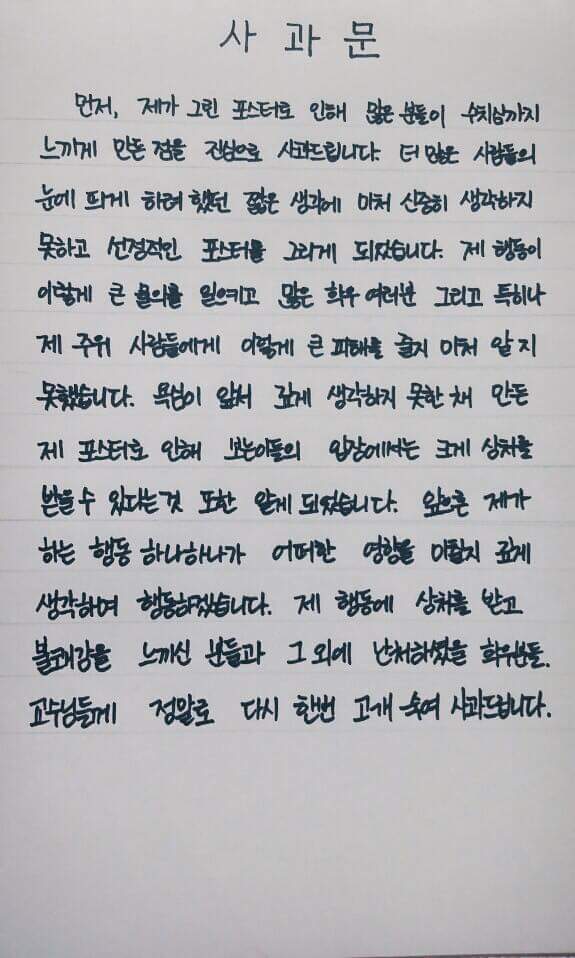 사과문
먼저, 제가 그린 포스터로 인해 많은 분들이 수치심까지
느끼게 만든 점을 진심으로 사과드립니다. 더 많은 사람들의
눈에 띄게 하려 했던 짧은 생각에 미처 신중히 생각하지
못하고 선정적인 포스터를 그리게 되었습니다. 제 행동이
이렇게 큰 물의를 일으키고 많은 학우 여러분 그리고 특히나
제 주위 사람들에게 이렇게 큰 피해를 줄지 미처 알지
못했습니다. 욕심이 앞서 깊게 생각하지 못한 채 만든
제 포스터로 인해 보는이들의 입장에서는 크게 상처를
받을 수 있다는것 또한 알게 되었습니다. 앞으론 제가
하는 행동 하나하나가 어떠한 영향을 미칠지 깊게
생각하며 행동하겠습니다. 제 행동에 상처를 받고
불쾌감을 느끼신 분들과 그 외에 난처하셨을 학우분들.
교수님들께 정말로 다시 한번 고개 숙여 사과드립니다.